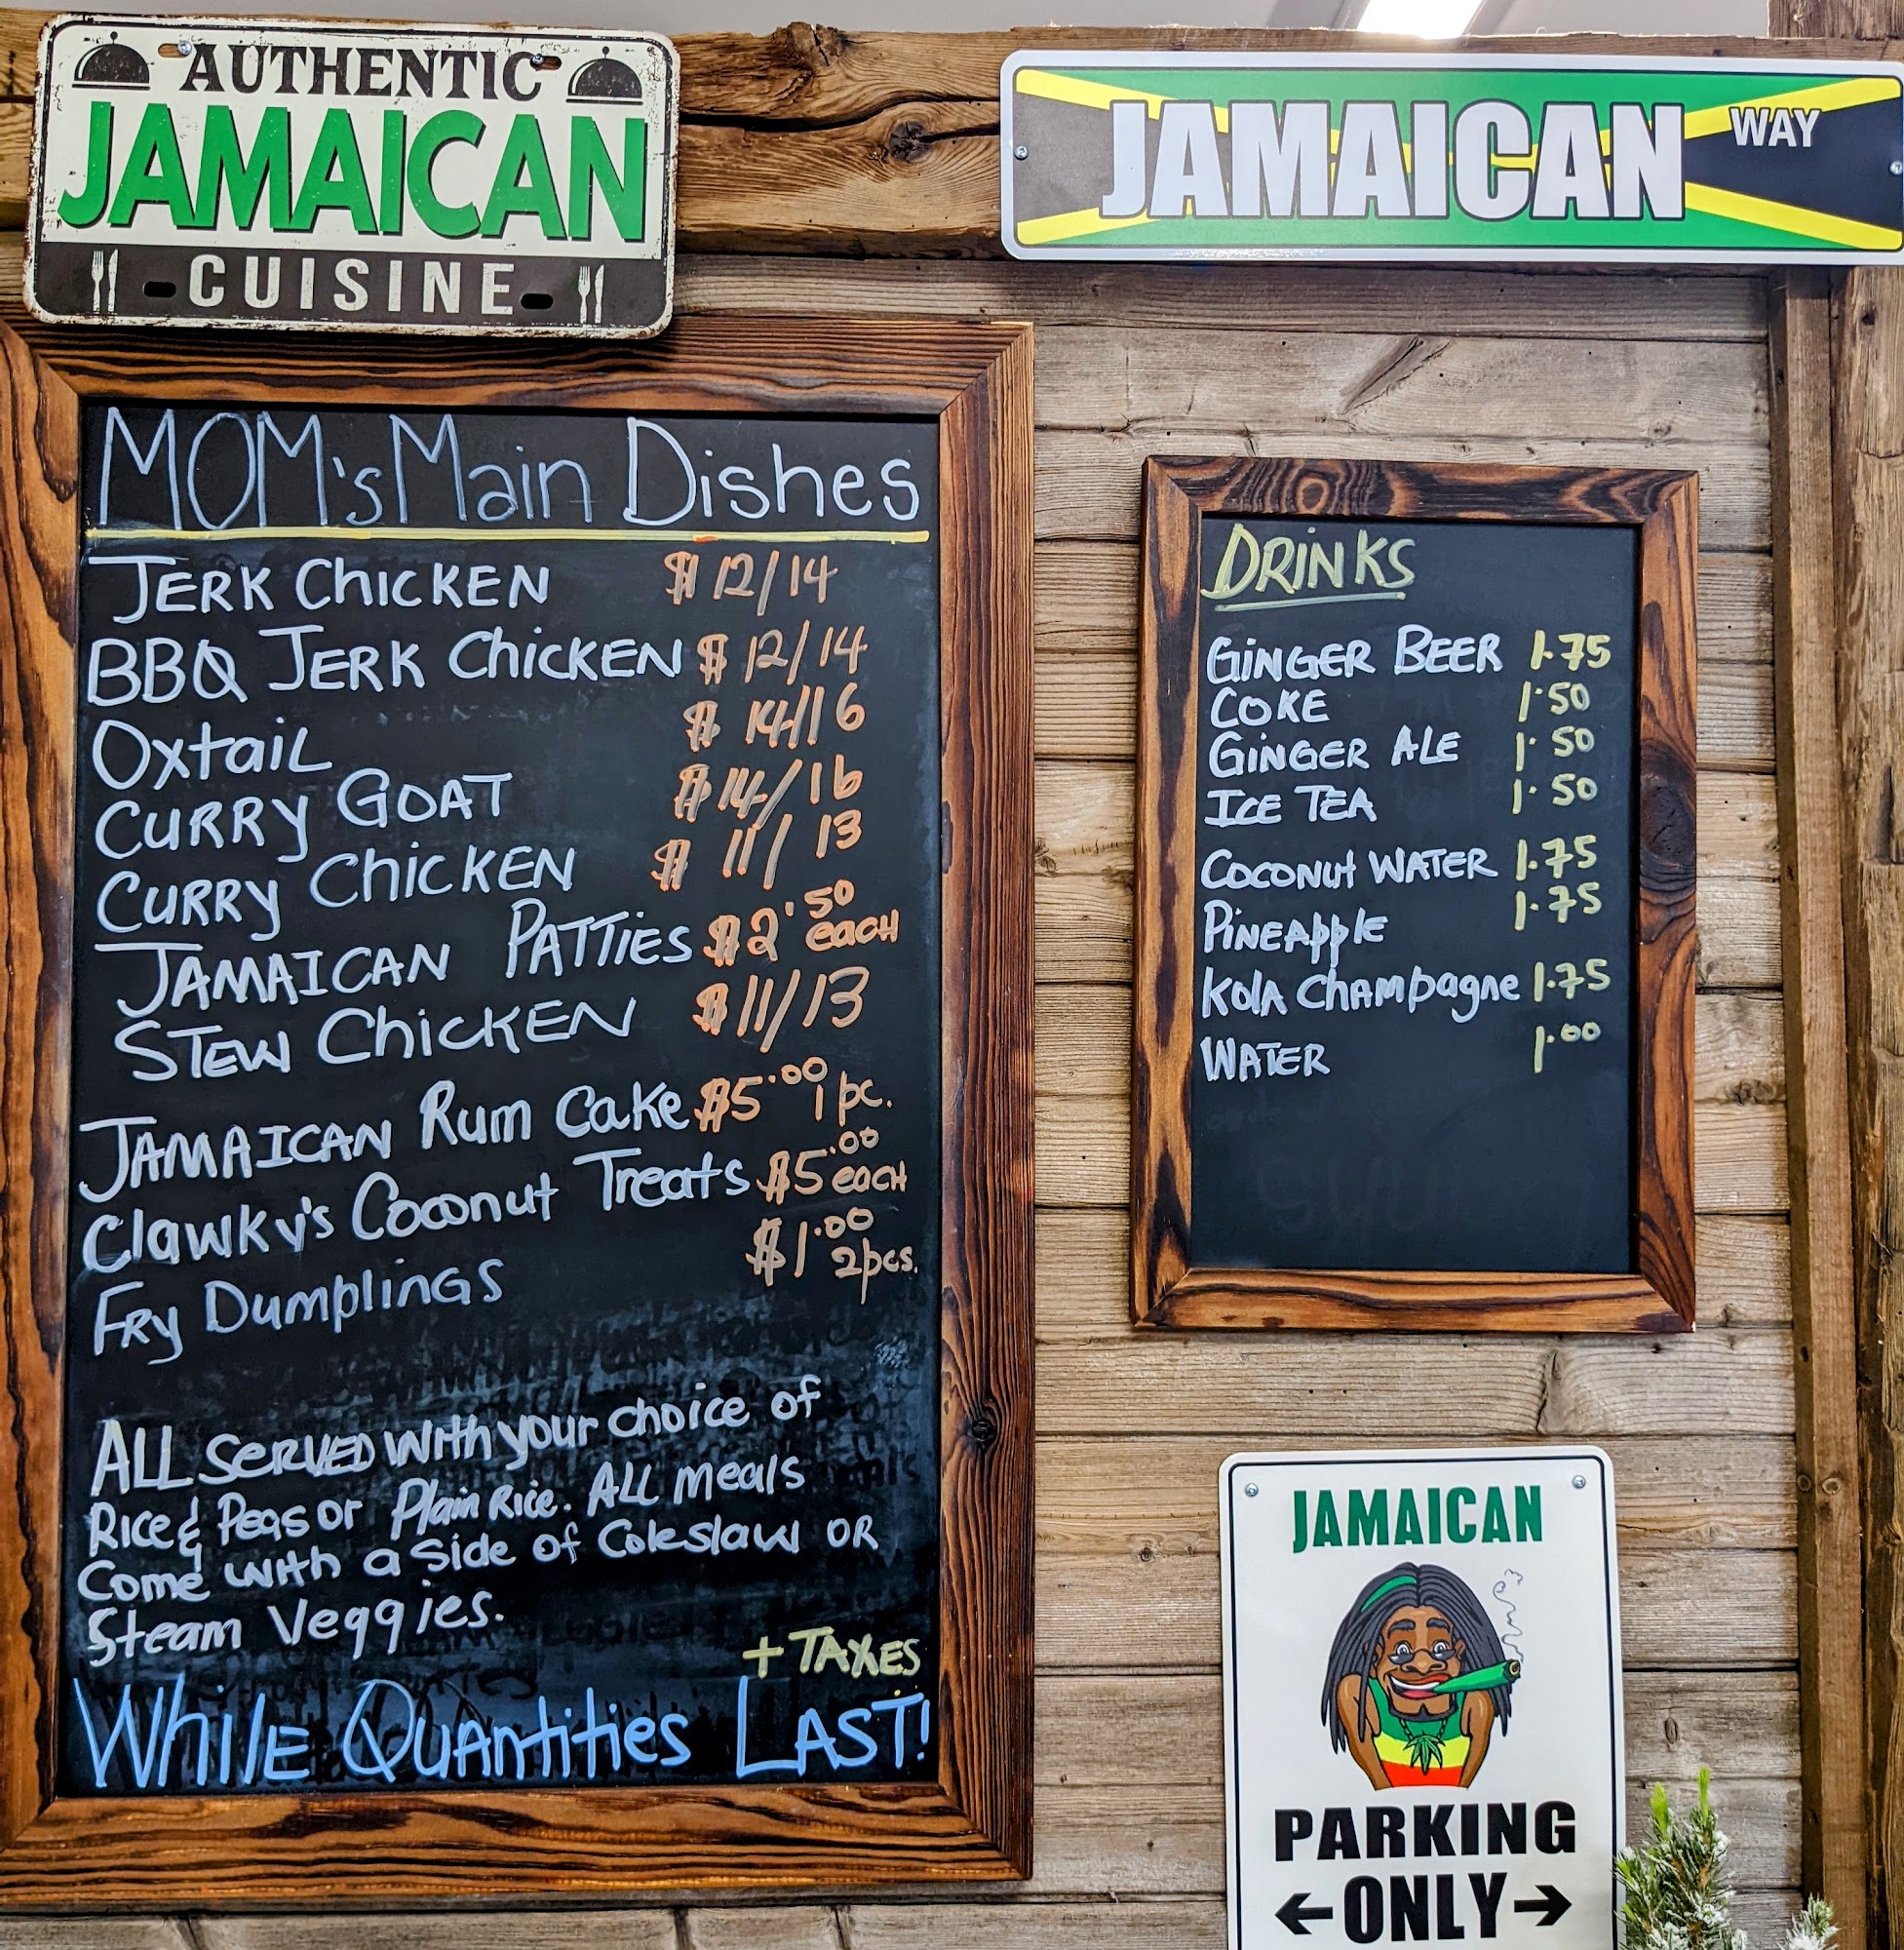 AUTHENTIC
JAMAICAN
CUISINE
JAMAICAN WAY
MOM's Main Dishes
JERK CHICKEN $12/14
BBQ JERK CHICKEN $12/14
OxtaiL $14/16
CURRY GOAT $14/16
CURRY CHICKEN $11/13
JAMAICAN PATTIES $2.50 each
STEW CHICKEN $11/13
JAMAICAN Rum Cake $5.00 1pc.
Clawky's Coconut Treats $5.00 each
FRy DumplinGS $1.00 2pcs.
ALL SERVED With your choice of
Rice & Peas or Plain Rice. ALL meals
Come with a Side of Coleslaw OR
Steam Veggies.
+ TAXES
While Quantities LAST!
DRINKS
GINGER BEER 1.75
COKE 1.50
GINGER ALE 1.50
ICE TEA 1.50
COCONUT WATER 1.75
PINEApple 1.75
Kola Champagne 1.75
WATER 1.00
JAMAICAN
PARKING
←ONLY→